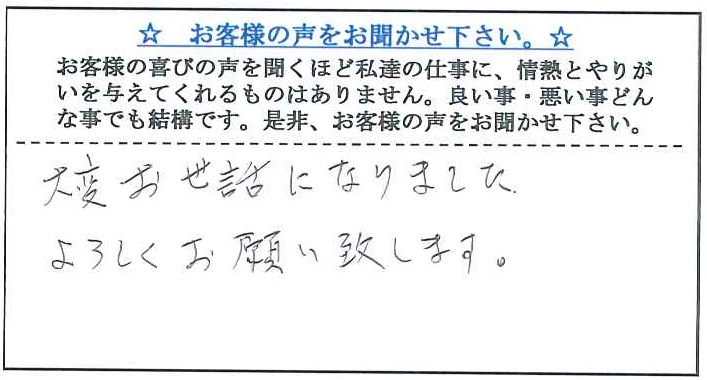 ☆ お客様の声をお聞かせ下さい。☆
お客様の喜びの声を聞くほど私達の仕事に、情熱とやりが
いを与えてくれるものはありません。良い事・悪い事どん
な事でも結構です。是非、お客様の声をお聞かせ下さい。
大変お世話になりました.
よろしくお願い致します。